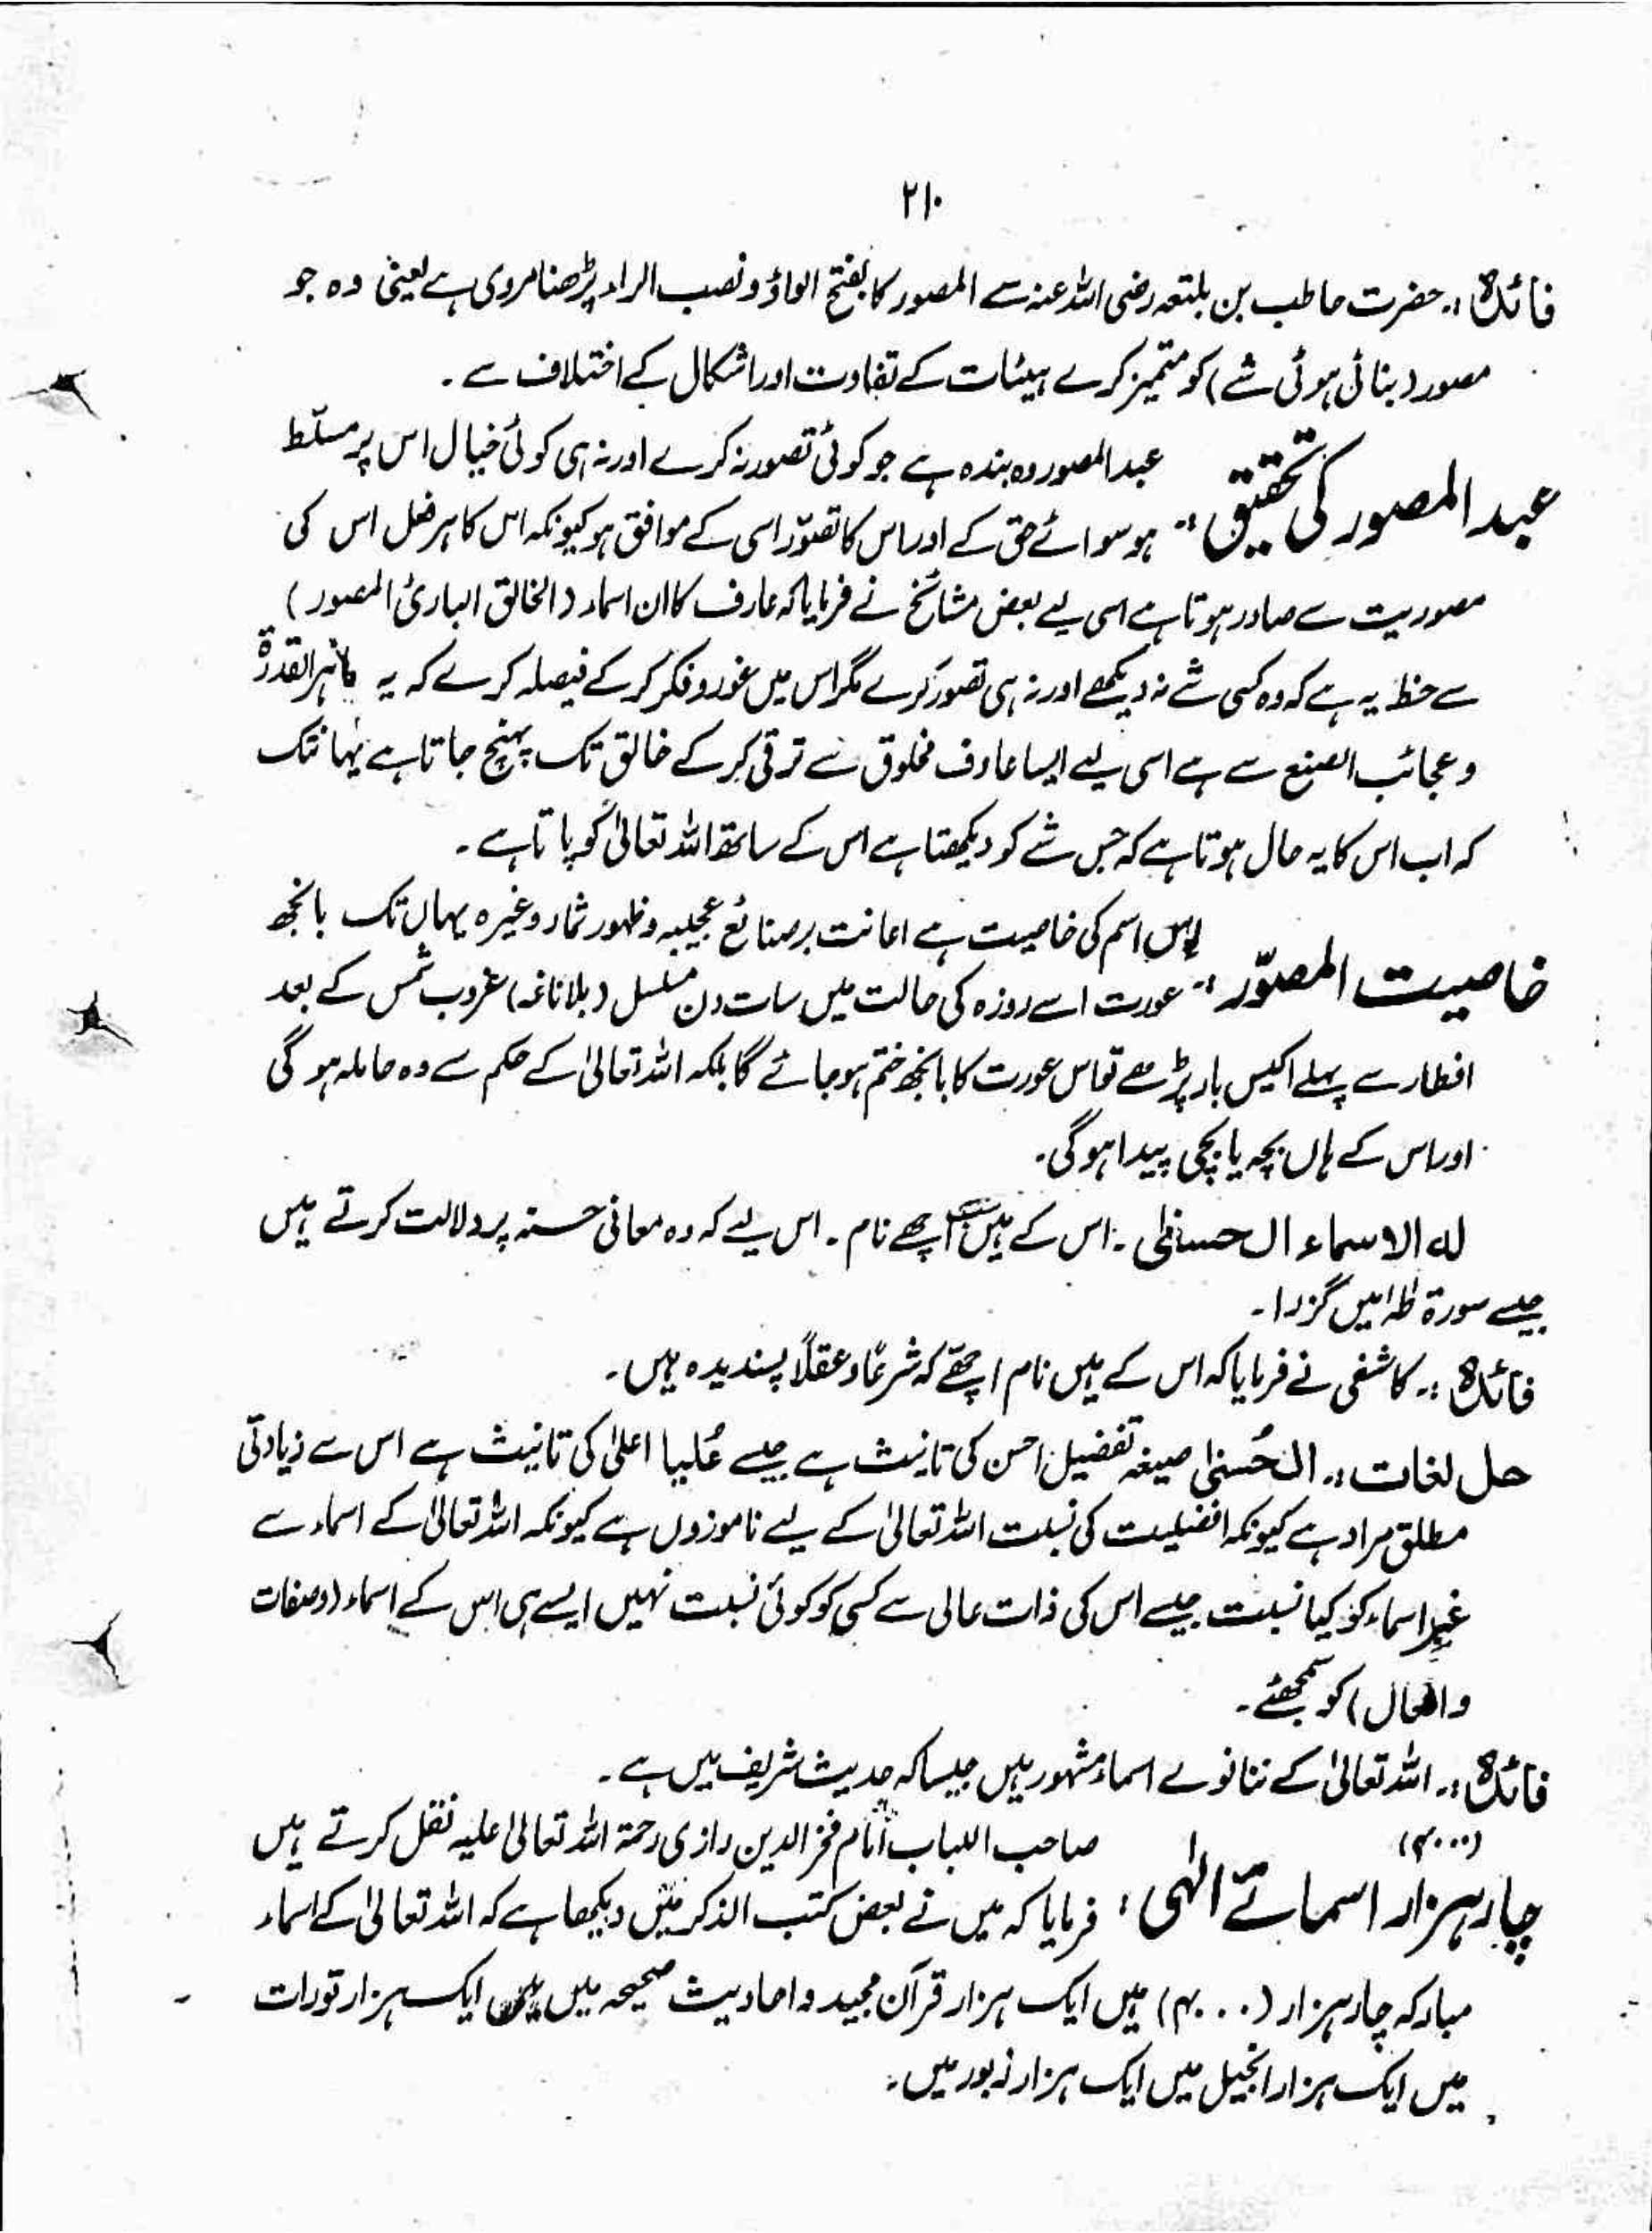 ۲۱۰
فائدہ:۔ حضرت حاطب بن بلتعہ رضی اللہ عنہ سے المصور کا بفتح الواؤ و نصب الراء پڑھنا مروی ہے یعنی وہ جو
مصور (بنائی ہوئی شے) کو متمیز کرے ہیئات کے تفاوت اور اشکال کے اختلاف سے۔
عبد المصور کی تحقیق:۔
عبد المصور وہ بندہ ہے جو کوئی تصور نہ کرے اور نہ ہی کوئی خیال اس پر مسلّط
ہو سوائے حق کے اور اس کا تصوّر اسی کے موافق ہو کیونکہ اس کا ہر فعل اس کی
مصوریت سے صادر ہوتا ہے اسی لیے بعض مشائخ نے فرمایا کہ عارف کا ان اسماء (الخالق الباریٔ المصور)
سے حظ یہ ہے کہ وہ کسی شے نہ دیکھے اور نہ ہی تصور کرے مگر اس میں غور و فکر کر کے فیصلہ کرے کہ یہ القدرۃ
و عجائب الصنع سے ہے اسی لیے ایسا عارف مخلوق سے ترقی کر کے خالق تک پہنچ جاتا ہے یہانتک
کہ اب اس کا یہ حال ہوتا ہے کہ جس شے کو دیکھتا ہے اس کے ساتھ اللہ تعالیٰ کو پاتا ہے۔
خاصیت المصوّر:۔
اس اسم کی خاصیت ہے اعانت بر صنائع عجیبہ و ظہور ثمار وغیرہ یہاں تک بانجھ
عورت اسے روزہ کی حالت میں سات دن مسلسل (بلاناغہ) غروب شمس کے بعد
افطار سے پہلے اکیس بار پڑھے تو اس عورت کا بانجھ ختم ہو جائے گا بلکہ اللہ تعالیٰ کے حکم سے وہ حاملہ ہو گی
اور اس کے ہاں بچہ یا بچی پیدا ہو گی۔
لہ الاسماء الحسنیٰ۔ اس کے ہیں اچھے نام۔ اس لیے کہ وہ معانی حسنہ پر دلالت کرتے ہیں
جیسے سورۃ طٰہٰ میں گزرا۔
فائدہ:۔ کاشفی نے فرمایا کہ اس کے ہیں نام اچھے کہ شرعًا و عقلًا پسندیدہ ہیں۔
حل لغات:۔ الحُسنیٰ صیغہ تفضیل احسن کی تانیث ہے جیسے عُلیا اعلیٰ کی تانیث ہے اس سے زیادتی
مطلق مراد ہے کیونکہ افضلیت کی نسبت اللہ تعالیٰ کے لیے ناموزوں ہے کیونکہ اللہ تعالیٰ کے اسماء سے
غیر اسماء کو کیا نسبت جیسے اس کی ذات عالی سے کسی کو کوئی نسبت نہیں ایسے ہی اس کے اسماء (و صفات
و افعال) کو سمجھئے۔
فائدہ:۔ اللہ تعالیٰ کے ننانوے اسماء مشہور ہیں جیسا کہ حدیث شریف میں ہے۔
(۴۰۰۰)
چار ہزار اسمائے الٰہی:
صاحب اللباب امام فخر الدین رازی رحمۃ اللہ تعالیٰ علیہ نقل کرتے ہیں
فرمایا کہ میں نے بعض کتب الذکر میں دیکھا ہے کہ اللہ تعالیٰ کے اسماء
مبارکہ چار ہزار (۴۰۰۰) ہیں ایک ہزار قرآن مجید و احادیث صحیحہ میں ایک ہزار تورات
میں ایک ہزار انجیل میں ایک ہزار زبور میں۔